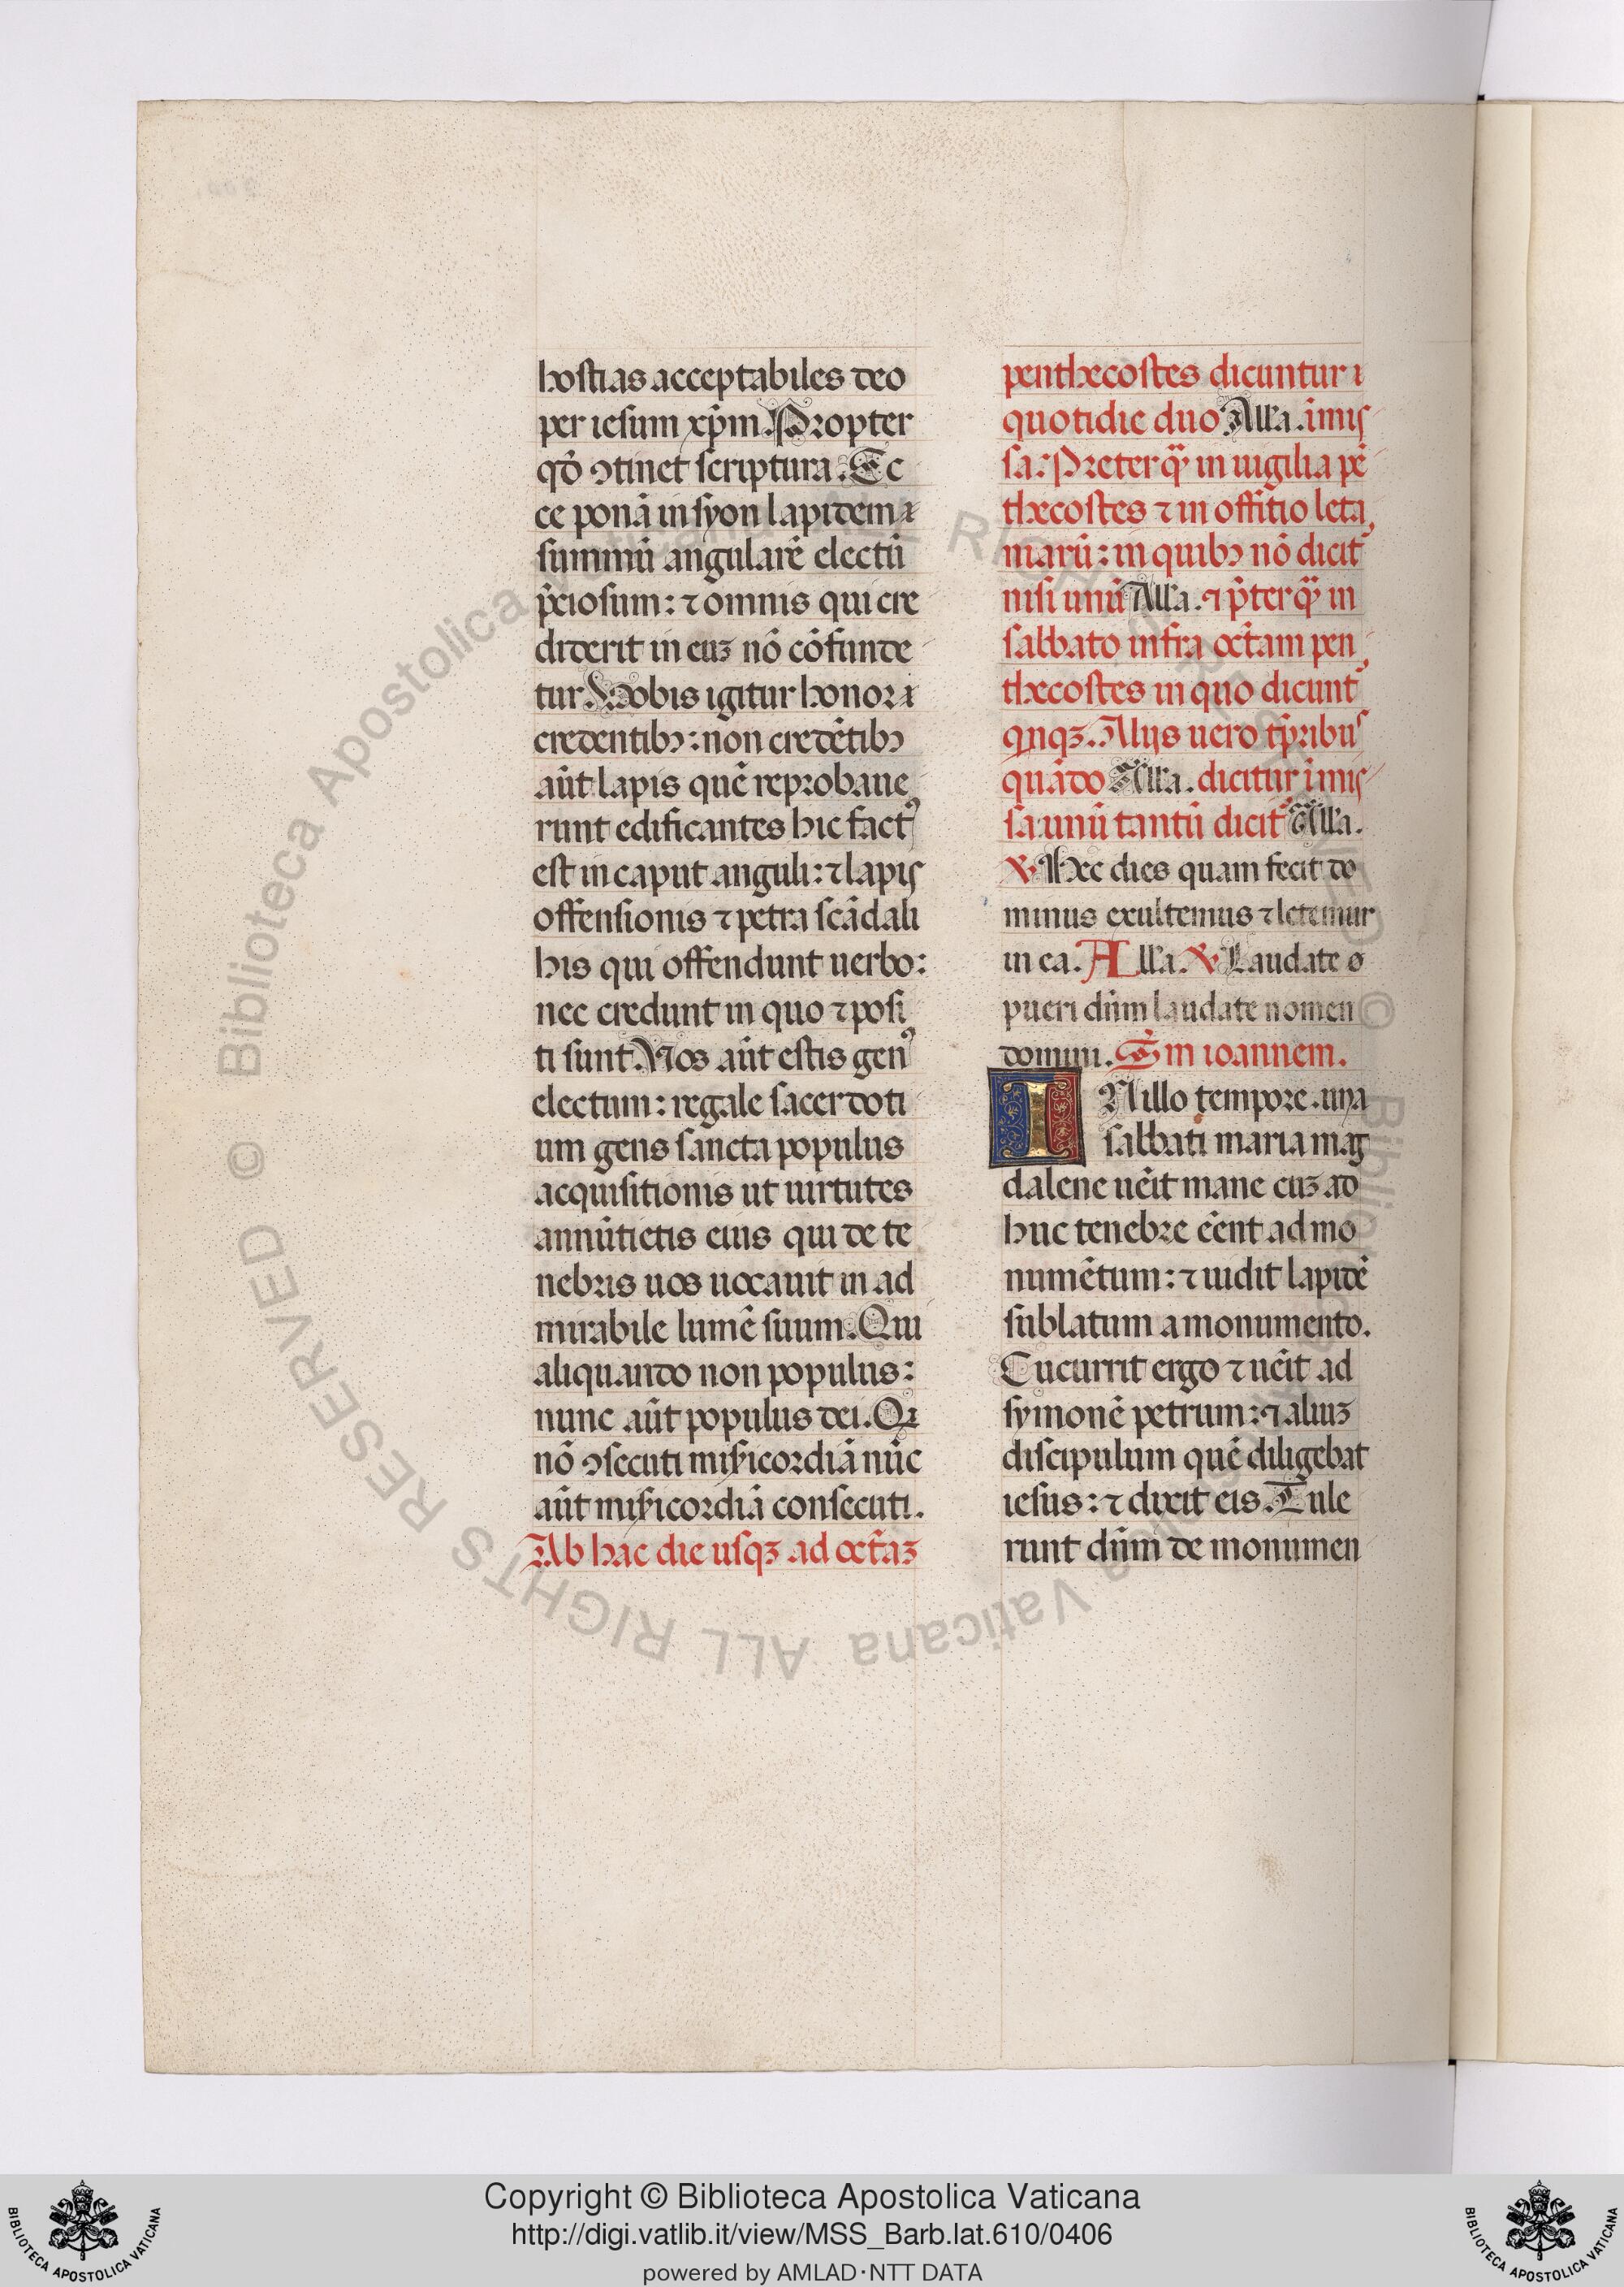 hostias acceptabiles deo
per iesum xp̃m. Propter
qđ ꝯtinet scriptura. Ec
ce ponã in syon lapidem
summũ angularẽ electũ
p̃ciosum: ⁊ omnis qui cre
diderit in euꝫ nõ cõfunde
tur. Vobis igitur honor
credentibꝰ: non credẽtibꝰ
aũt lapis quẽ reprobaue
runt edificantes hic factꝰ
est in caput anguli: ⁊ lapis
offensionis ⁊ petra scãdali
his qui offendunt uerbo:
nec credunt in quo ⁊ posi
ti sunt. Vos aũt estis genꝰ
electum: regale sacerdoti
um gens sancta populus
acquisitionis ut uirtutes
annũtietis eius qui de te
nebris uos uocauit in ad
mirabile lumẽ suum. Qui
aliquando non populus:
nunc aũt populus dei. Qꝛ
nõ ꝯsecuti misẽicordiã nũc
aũt misẽicordiã consecuti.
Ab hac die usqꝫ ad octãꝫ
penthecostes dicuntur
quotidie duo All'a. ĩ mis
sa: Preterq̃ in uigilia pẽ
thecostes ⁊ in offitio leta
niarũ: in quibꝰ nõ dicit̃
nisi unũ All'a. ⁊ p̃terq̃ in
sabbato infra octãm pen
thecostes in quo dicunt̃
qnqꝫ. Alijs uero tp̃ribus
quãdo All'a. dicitur ĩ mis
sa: unũ tantũ dicit̃ All'a.
℣ Hec dies quam fecit do
minus exultemus ⁊ letemur
in ea. All'a. ℣ Laudate
pueri dñm laudate nomen
domini. Sm̃ ioannem.
IN illo tempore. una
sabbati maria mag
dalene uẽit mane cuꝫ ad
huc tenebre eẽnt ad mo
numẽtum: ⁊ uidit lapidẽ
sublatum a monumento.
Cucurrit ergo ⁊ uẽit ad
symonẽ petrum: ⁊ aliuꝫ
discipulum quẽ diligebat
iesus: ⁊ dixit eis. Tule
runt dñm de monumen
© Biblioteca Apostolica Vaticana ALL RIGHTS RESERVED
Copyright © Biblioteca Apostolica Vaticana
http://digi.vatlib.it/view/MSS_Barb.lat.610/0406
powered by AMLAD·NTT DATA
BIBLIOTECA APOSTOLICA VATICANA
BIBLIOTECA APOSTOLICA VATICANA